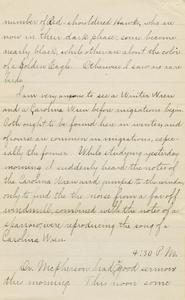 number of Red-shouldered Hawks, who are
now in their dark phase; some become
nearly black, while others are about the color
of a Golden Eagle. Otherwise I saw no rare
birds.
I am very anxious to see a Winter Wren
and a Carolina Wren before migrations begin.
Both ought to be found here in winter, and
of course are common in migrations, espec-
ially the former. While studying yesterday
morning I suddenly heard the notes of
the Carolina Wren and rushed to the window
only to find the noise from a far off
windmill, combined with the notes of a
Sparrow, were reproducing the song of a
Carolina Wren.
4:30 P.M.
Dr. McPherson had a good sermon
this morning. This noon some